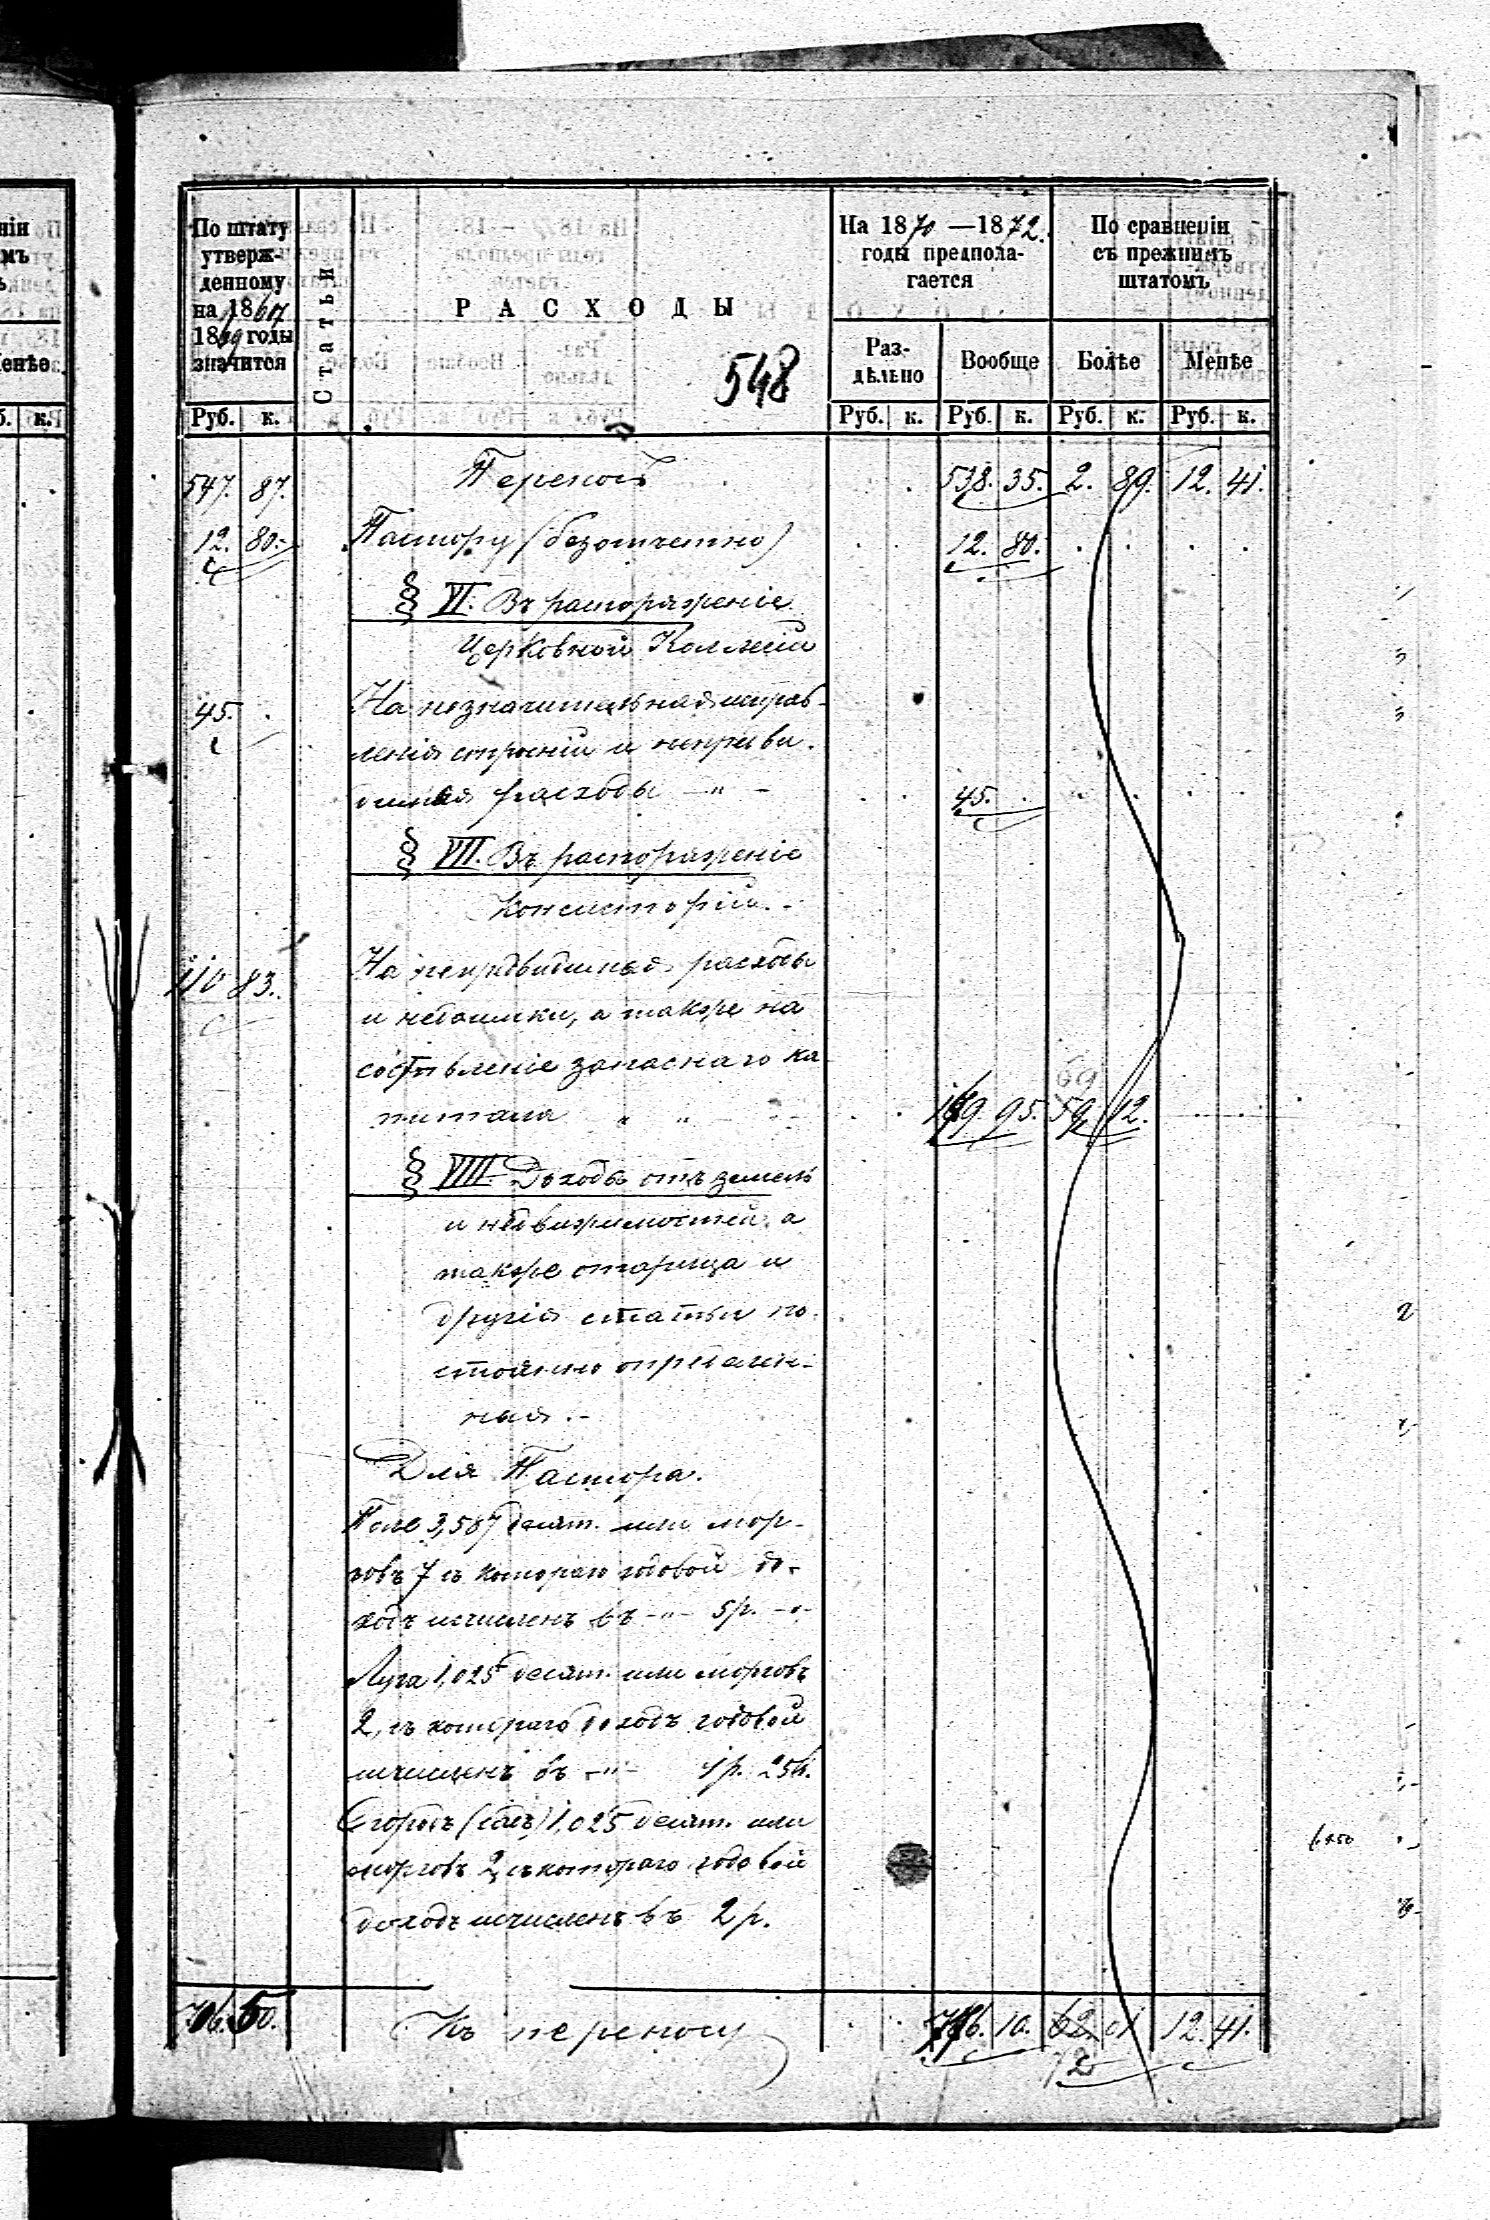 По штату
утверж-
денному
на 1867
1869 годы
значится
Статьи
РАСХОДЫ
548
На 1870 —1872.
годы предпола-
гается
По сравненіи
съ прежнимъ
штатомъ
Раз-
дѣльно
Вообще
Болѣе
Менѣе
Руб. к.
Руб. к. Руб. к. Руб. к. Руб. к.
547. 87. Переносъ 538. 35. 2. 89. 12. 41.
12. 80. Пастору (безотчетно) 12. 80.
§ VI. Въ распоряженіе
Церковной Коллегіи
45. На незначительныя исправ-
ленія строеній и непредви-
димыя расходы -"- 45.
§ VII. Въ распоряженіе
Консисторіи.-
110 83. На непредвидимыя расходы
и недоимки, а также на
составленіе запаснаго ка-
69
питала " " 179 95. 59 12.
§ VIII. Доходы отъ земель
и недвижимостей, а
также
другія статьи по-
стоянно опредѣлен-
ныя.-
Для Пастора.
Поле 3,587 десят. или мор-
говъ 7 съ котораго годовой до-
ходъ исчисленъ въ -"- 5 р. -"-
Луга 1,025 десят. или морговъ
2, съ котораго доходъ годовой
исчисленъ въ -"- 1 р. 25 к.
Огородъ (садъ) 1,025 десят. или
морговъ 2, съ котораго годовой
доходъ исчисленъ въ 2 р.
706. 50. Къ переносу 776. 10. 62 01 12. 41.
72